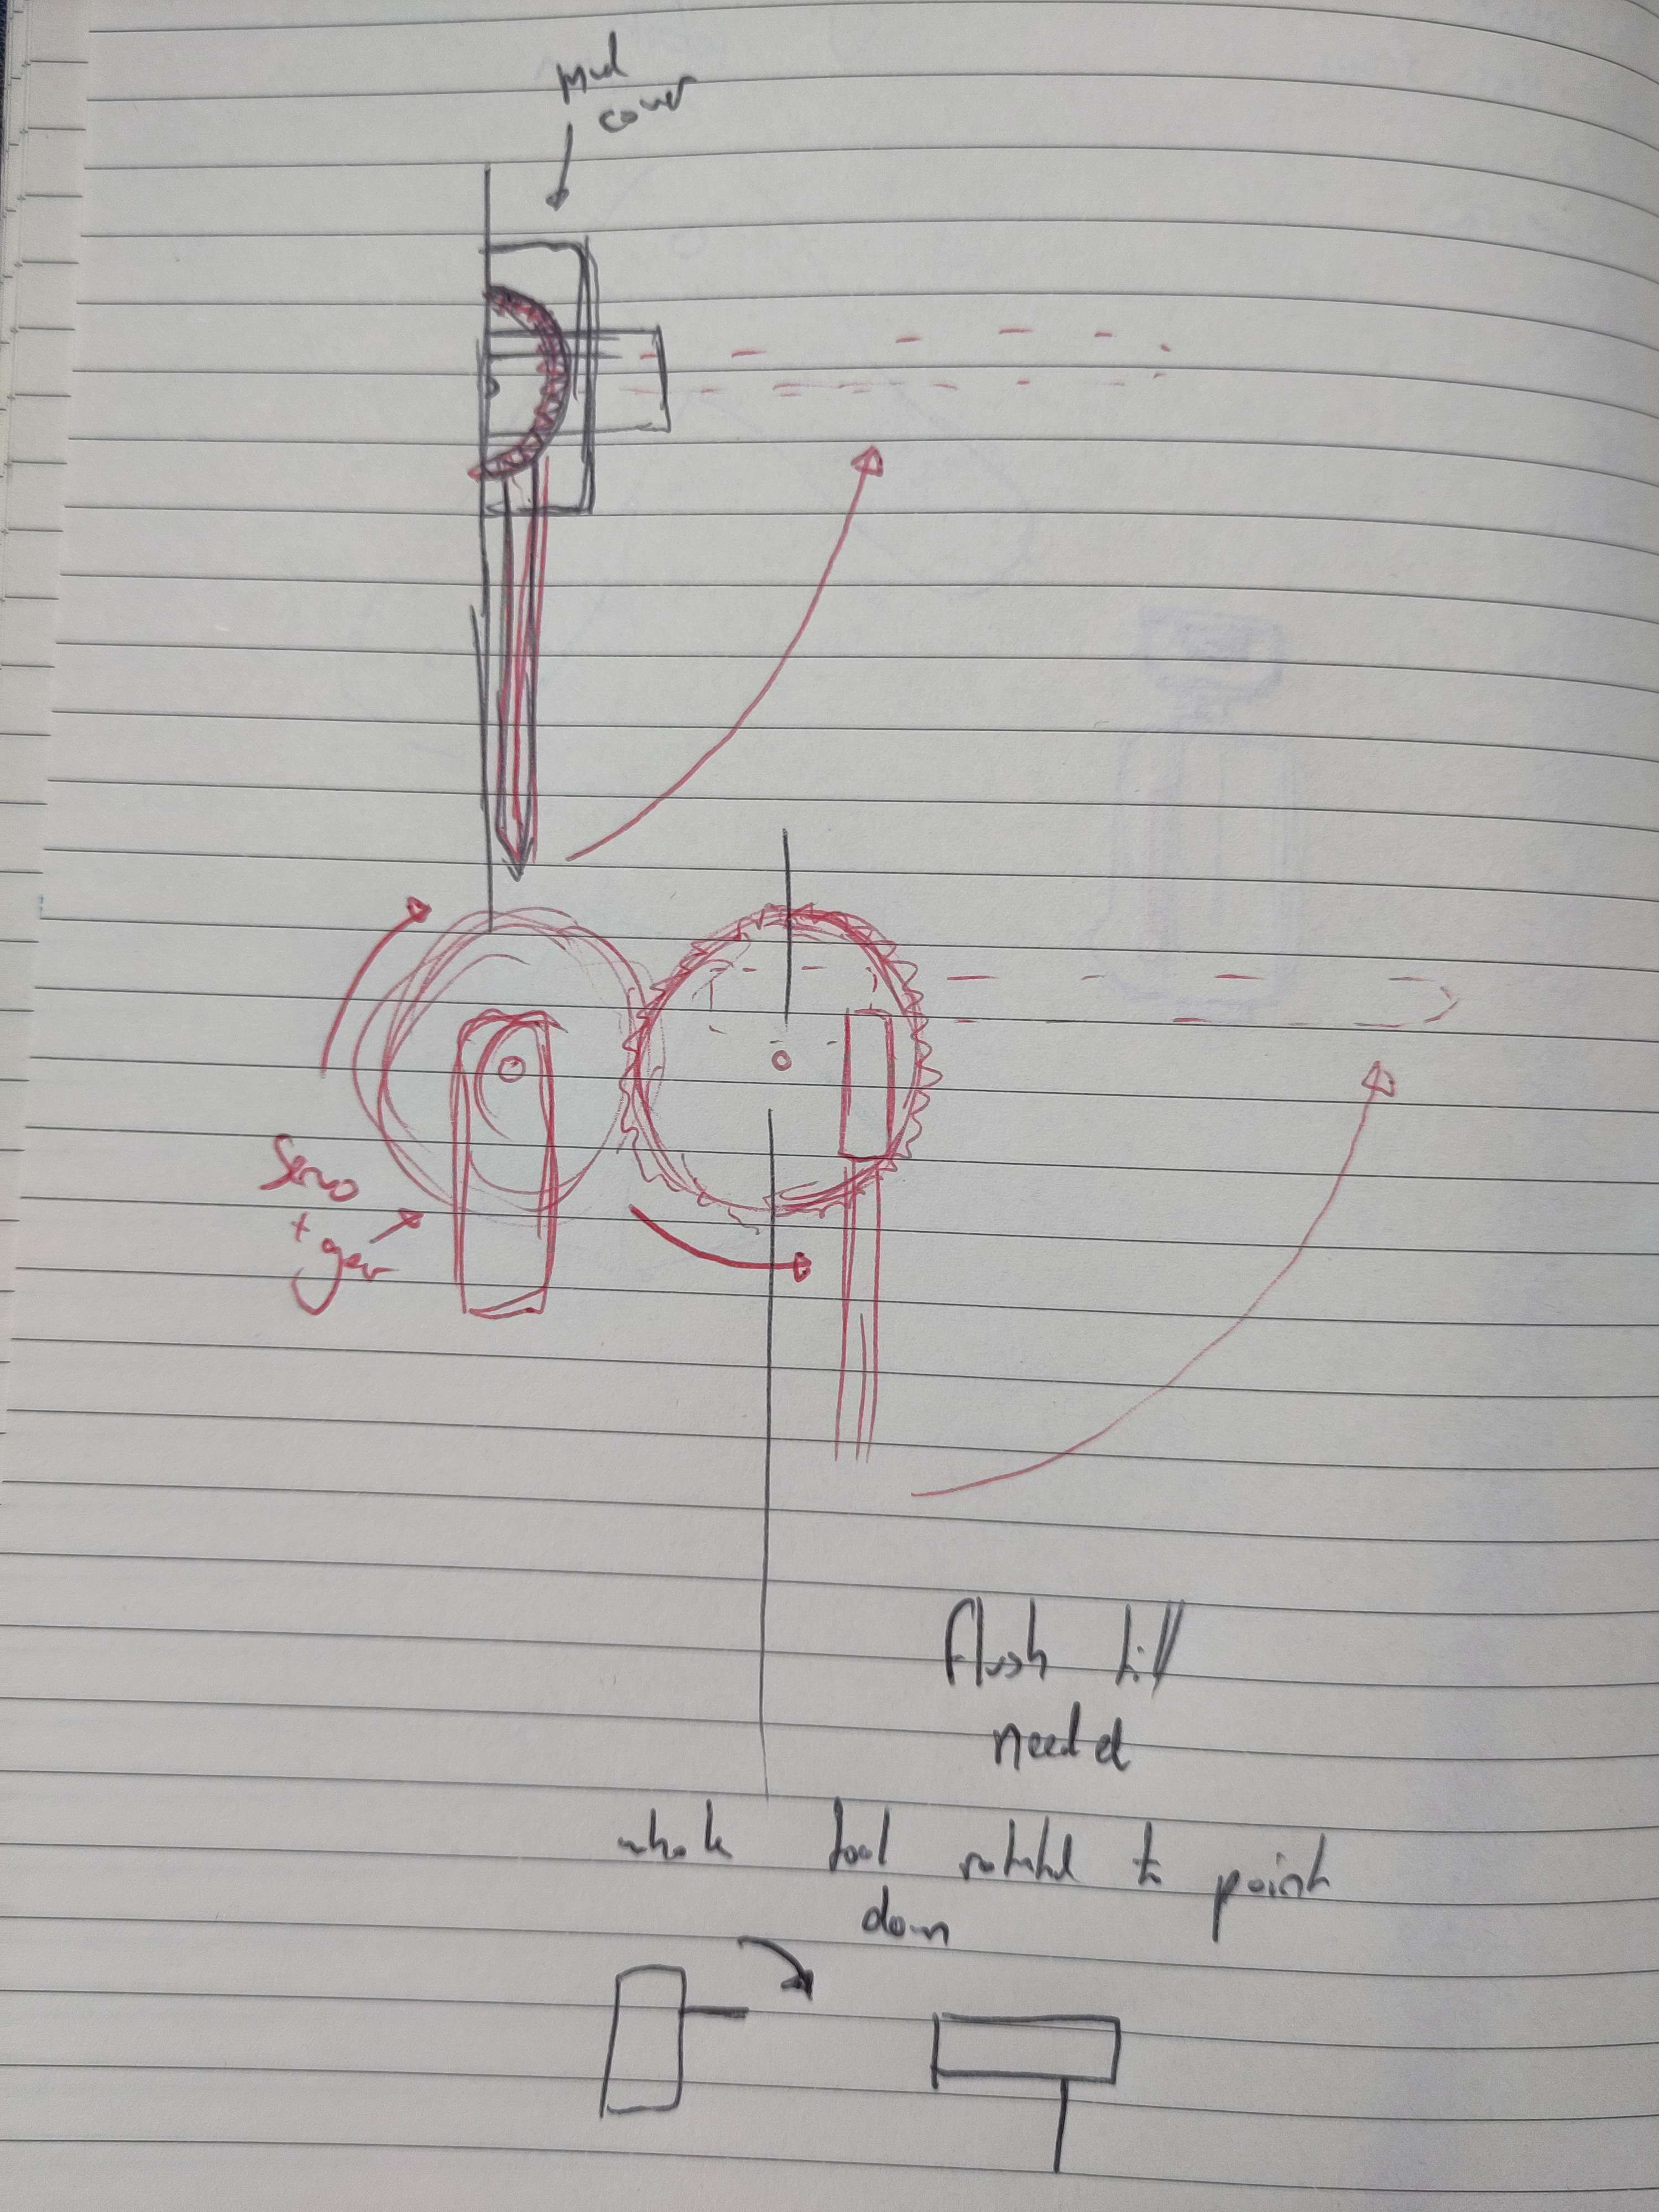 mud
cover
Servo
+
gear
flush till
needed
whole tool rotated to point
down